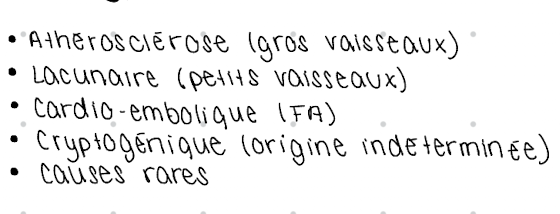 • Athérosclérose (gros vaisseaux)
• Lacunaire (petits vaisseaux)
• Cardio-embolique (FA)
• Cryptogénique (origine indéterminée)
• Causes rares